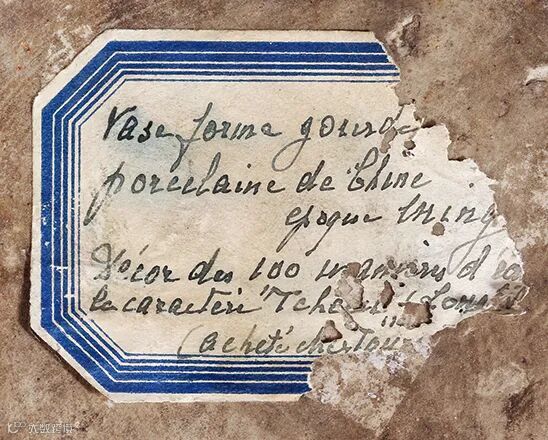 Vase forme gourde
porcelaine de Chine
époque Ming
Décor des 100 manières d'éc
le caractère "Tcheou" (Long
(acheté chez Lou